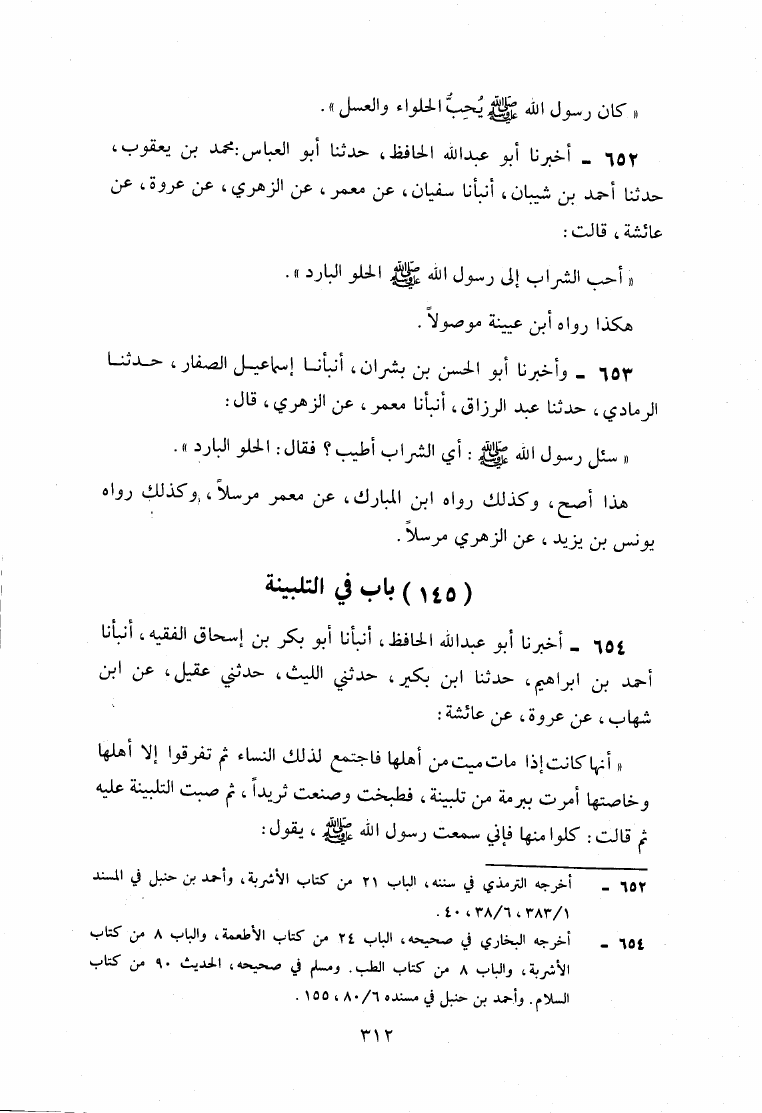 « كان رسول الله ﷺ يُحِبُّ الحلواء والعسل » .
٦٥٢ ـ أخبرنا أبو عبدالله الحافظ ، حدثنا أبو العباس : محمد بن يعقوب ،
حدثنا أحمد بن شيبان ، أنبأنا سفيان ، عن معمر ، عن الزهري ، عن عروة ، عن
عائشة ، قالت :
« أحب الشراب إلى رسول الله ﷺ الحلو البارد » .
هكذا رواه أبن عيينة موصولاً .
٦٥٣ ـ وأخبرنا أبو الحسن بن بشران ، أنبأنـا إسماعيـل الصفار ، حـدثنـا
الرمادي ، حدثنا عبد الرزاق ، أنبأنا معمر ، عن الزهري ، قال :
« سئل رسول الله ﷺ : أي الشراب أطيب ؟ فقال : الحلو البارد » .
هذا أصح ، وكذلك رواه ابن المبارك ، عن معمر مرسلاً ، وكذلك رواه
يونس بن يزيد ، عن الزهري مرسلاً .
( ١٤٥ ) باب في التلبينة
٦٥٤ ـ أخبرنا أبو عبدالله الحافظ ، أنبأنا أبو بكر بن إسحاق الفقيه ، أنبأنا
أحمد بن ابراهيم ، حدثنا ابن بكير ، حدثني الليث ، حدثني عقيل ، عن ابن
شهاب ، عن عروة ، عن عائشة :
« أنها كانت إذا مات ميت من أهلها فاجتمع لذلك النساء ثم تفرقوا إلا أهلها
وخاصتها أمرت ببرمة من تلبينة ، فطبخت وصنعت ثريداً ، ثم صبت التلبينة عليه
ثم قالت : كلوا منها فإني سمعت رسول الله ﷺ ، يقول :
٦٥٢ ـ أخرجه الترمذي في سننه ، الباب ٢١ من كتاب الأشربة ، وأحمد بن حنبل في المسند
٣٨٣/١ ، ٣٨/٦ ، ٤٠ .
٦٥٤ ـ أخرجه البخاري في صحيحه ، الباب ٢٤ من كتاب الأطعمة ، والباب ٨ من كتاب
الأشربة ، والباب ٨ من كتاب الطب . ومسلم في صحيحه ، الحديث ٩٠ من كتاب
السلام . وأحمد بن حنبل في مسنده ٨٠/٦ ، ١٥٥ .
٣١٢